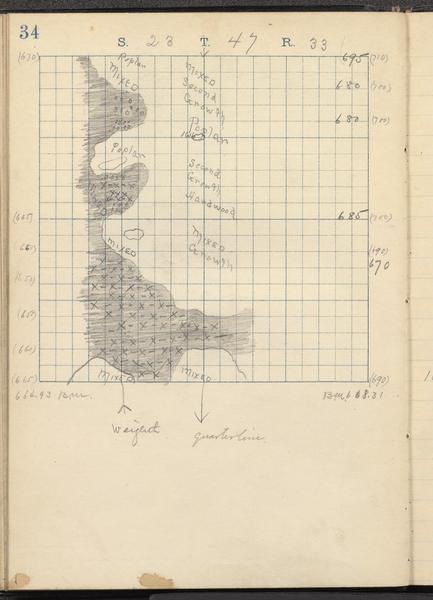 34
S. 23 T. 47 R. 33
(670) Poplar 695 (710)
Mixed Mixed 680 (700)
Second
Growth
Poplar 680 (700)
Poplar
Second
Growth
Hardwood
(665) 685 (700)
Mixed
Growth
mixed (690)
670
(650)
(660)
(665) Mixed Mixed (690)
666.93 B.M.
quarterline